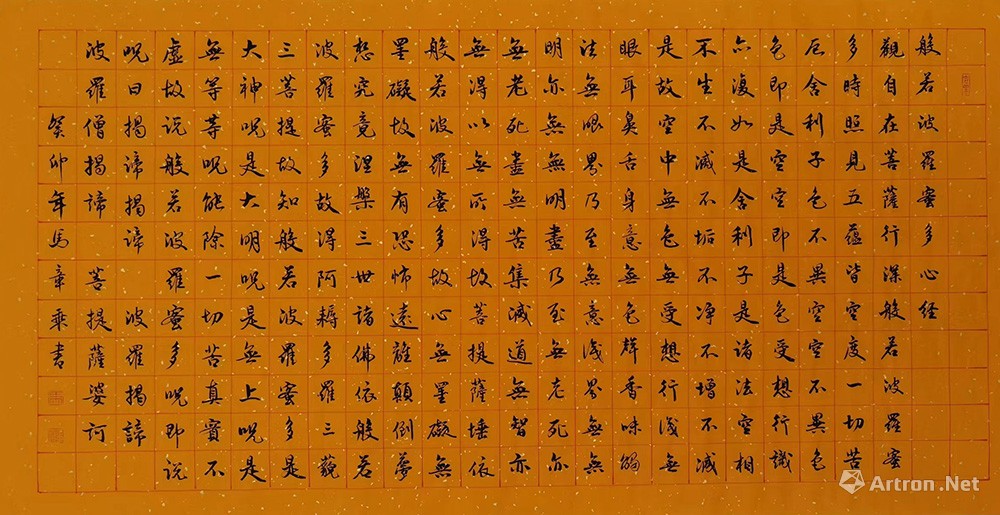 般若波羅蜜多心経
觀自在菩薩行深般若波羅蜜
多時照見五蘊皆空度一切苦
厄舍利子色不異空空不異色
色即是空空即是色受想行識
亦復如是舍利子是諸法空相
不生不滅不垢不净不增不減
是故空中無色無受想行識無
眼耳鼻舌身意無色聲香味觸
法無眼界乃至無意識界無無
明亦無無明盡乃至無老死亦
無老死盡無苦集滅道無智亦
無得以無所得故菩提薩埵依
般若波羅蜜多故心無罣礙無
罣礙故無有恐怖遠離顛倒夢
想究竟涅槃三世諸佛依般若
波羅蜜多故得阿耨多羅三藐
三菩提故知般若波羅蜜多是
大神呪是大明呪是無上呪是
無等等呪能除一切苦真實不
虛故說般若波羅蜜多呪即說
呪曰揭諦揭諦 波羅揭諦
波羅僧揭諦 菩提薩婆訶
癸卯年馬章乘書
Artron.Net